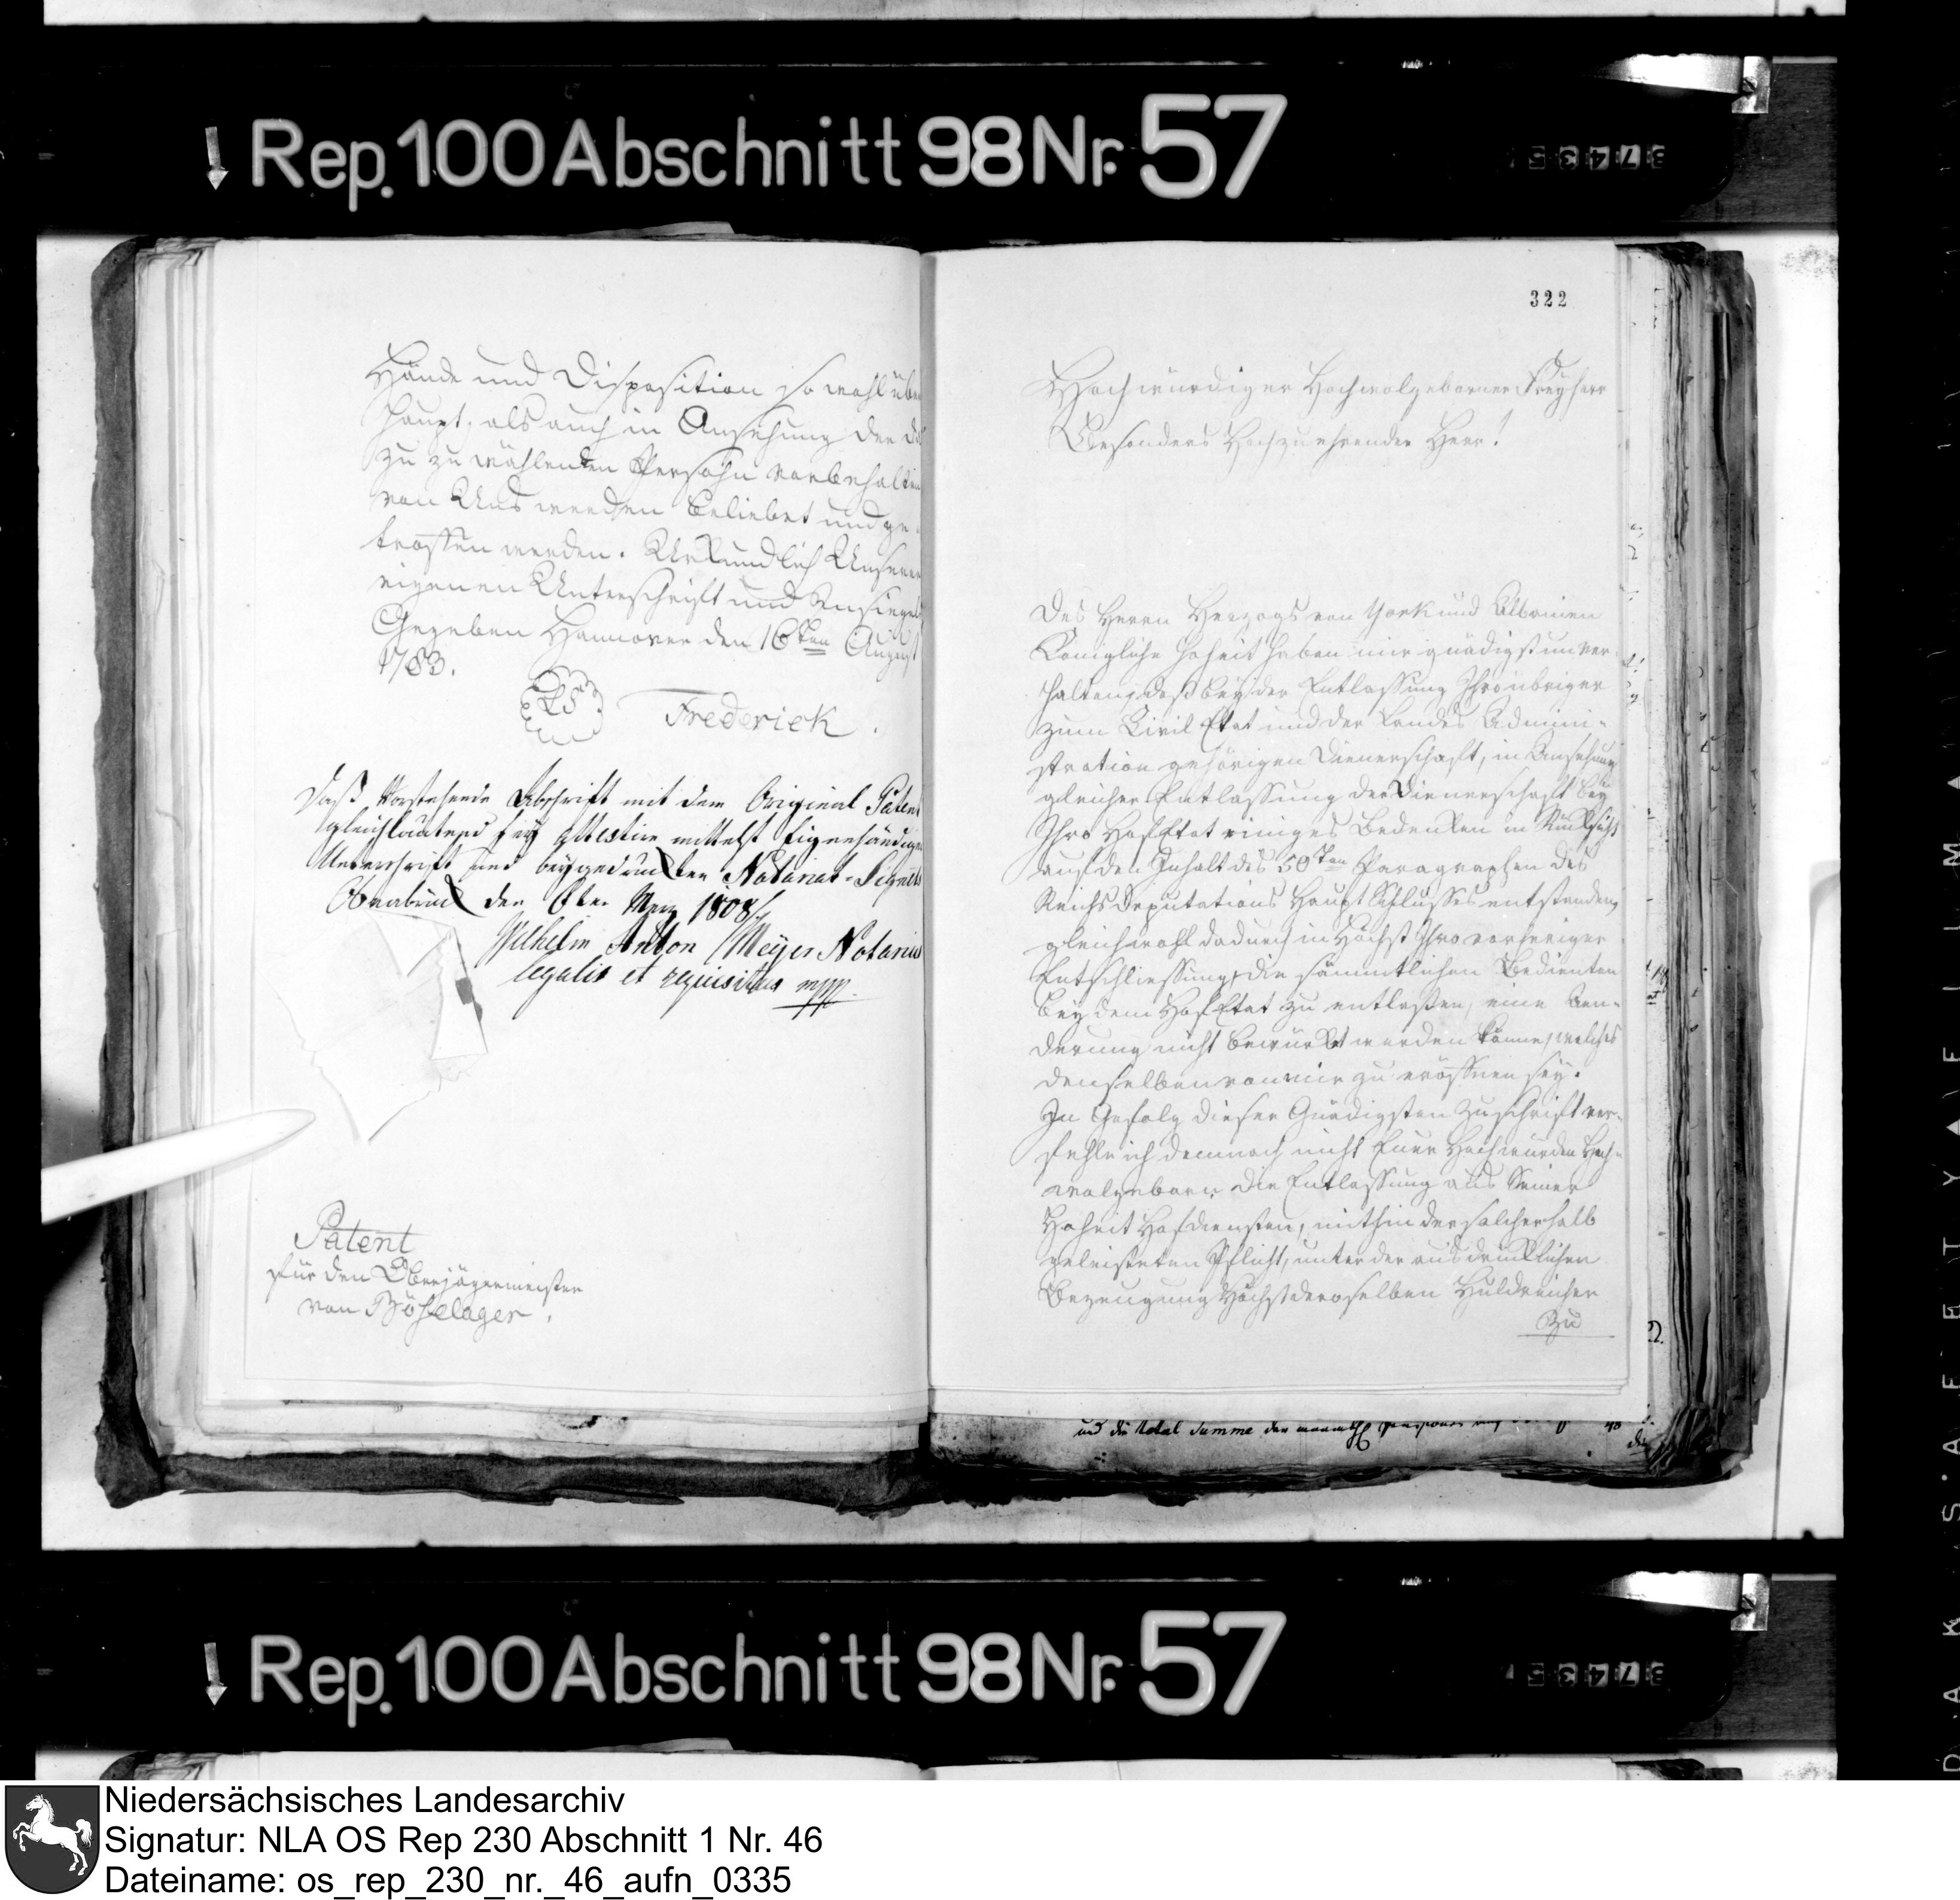 Rep. 100 Abschnitt 98 Nr. 57
Hände und Disposition so wohl über
haupt, als auch in Ansehung der da
zu zu wählenden Persohn vorbehalten
von Uns werden beliebet und ge
troffen werden. Urkundlich Unserer
eigenen Unterschrift und Insiegels
Gegeben Hannover den 16ten August
1783.
LS Frederick.
Daß Vorstehende Abschrift mit dem Original Patent
gleichlautend sey attestire mittelst Eigenhändiger
Unterschrift und beygedruckten Notariat-Signets
Osnabrück den 8ten Merz 1808/.
Wilhelm Anton Meyer Notarius
legalis et requisitus mpp.
Patent
für den Oberjägermeister
von Böselager.
322
Hochwürdiger Hochwolgeborner Freyherr
Besonders Hochzuehrender Herr!
Des Herrn Herzogs von York und Albanien
Königliche Hoheit haben mir gnädigst unver-
halten, daß bey der Entlassung Ihro übriger
zum Civil Etat und der Landes Admini-
stration gehörigen Dienerschaft, in Ansehung
gleicher Entlassung der Dienerschaft bey
Ihro Hof Etat einiges Bedenken in Rücksicht
auf den Inhalt des 50ten Paragraphen des
Reichs Deputations Haupt Schlusses entstanden,
gleichwohl dadurch in Höchst Ihro vorheriger
Entschliessung, die sämmtlichen Bedienten
bey dem Hof Etat zu entlaßen, eine Aen-
derung nicht bewürkt werden könne, welches
denselben von mir zu eröffnen sey.
In Gefolg dieser Gnädigsten Zuschrift ver-
fehle ich demnach nicht Euer Hochwürden Hoch-
wolgeborn die Entlassung aus Seiner
Hoheit Hofdiensten, mithin der solcherhalb
geleisteten Pflicht, unter der ausdrücklichen
Bezeugung Höchstderoselben Huldreicher
Zu
und die total Summe der
Rep. 100 Abschnitt 98 Nr. 57
Niedersächsisches Landesarchiv
Signatur: NLA OS Rep 230 Abschnitt 1 Nr. 46
Dateiname: os_rep_230_nr._46_aufn_0335